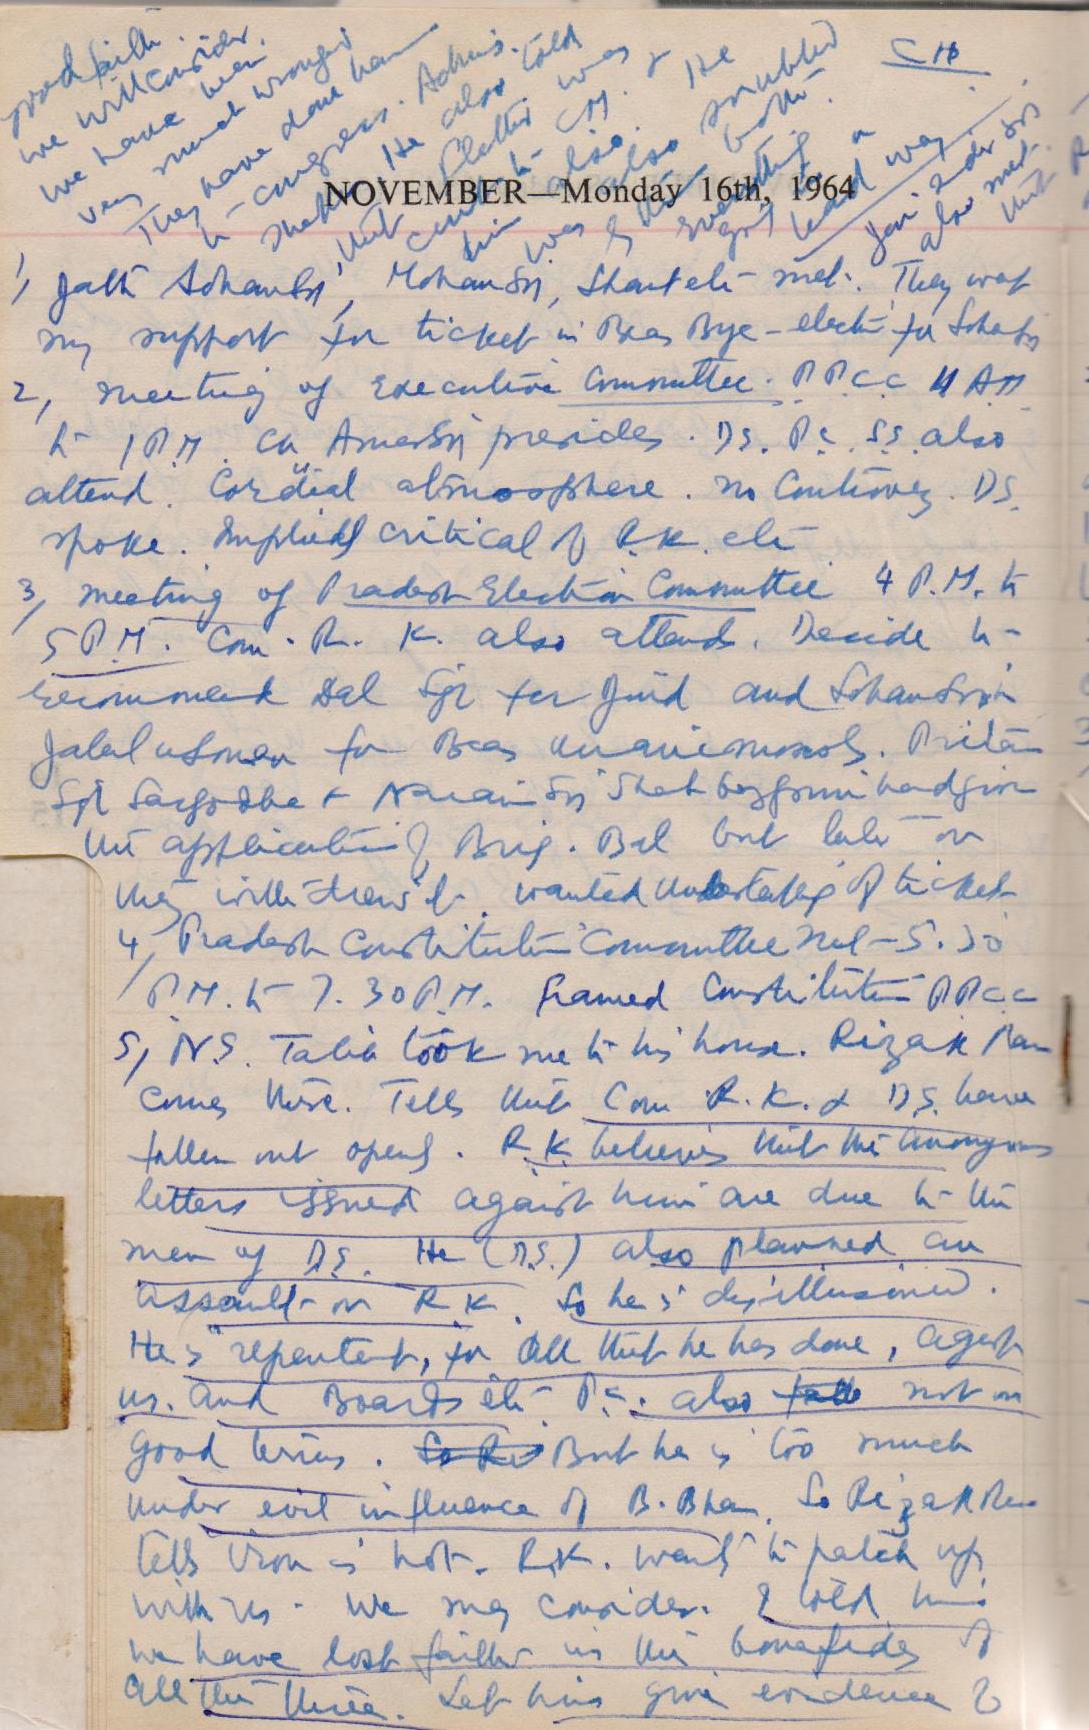 CH
NOVEMBER—Monday 16th, 1964
1, Jath Sohan Sn, Mohan Sn, met. They want
my support for ticket in Beas Bye-election for Sohan Sn
2, meeting of Executive Committee. P P C C 11 AM
to 1 P.M. Ch Amar Sn presides. D.S. P.C. S.S. also
attend. Cordial atmosphere. no Controversy. D.S.
spoke. Implied critical of R.K. etc
3, meeting of Pradesh Election Committee 4 P.M. to
5 P.M. Com. R. K. also attends. Decide to
recommend Dal Sgr for Jind and Sohan Singh
Jalal usman for Beas unanimously. Pritam
Sgh Sargodha + Narain Sn
the application of Brig. Bal but later on
they withdrew it. wanted undertaking of ticket
4, Pradesh Constitution Committee met - 5.30
P.M. to 7.30 P.M. framed Constitution P P C C
5, N.S. Talib took me to his house. Rizak Ram
comes there. Tells that Com R.K. & D.S. have
fallen out openly. R.K. believes that the anonymous
letters issued against him are due to the
men of D.S. He (D.S.) also planned an
assault on R K. So he is disillusioned.
He is repentent, for all that he has done, against
us. and Boards etc P.C. also not on
good terms. But he is too much
under evil influence of B. Bhan. So Rizak Ram
tells iron is hot. R.K. wants to patch up
with us. We may consider. I told him
we have lost faith in the bonafides of
all the three. Let him give evidence of
good faith.
we will consider.
we have been
very much wronged
They have done harm
to congress. Admn.
He also told
that
CM.
him also.
He
was also
by
everything
bad way
also met.